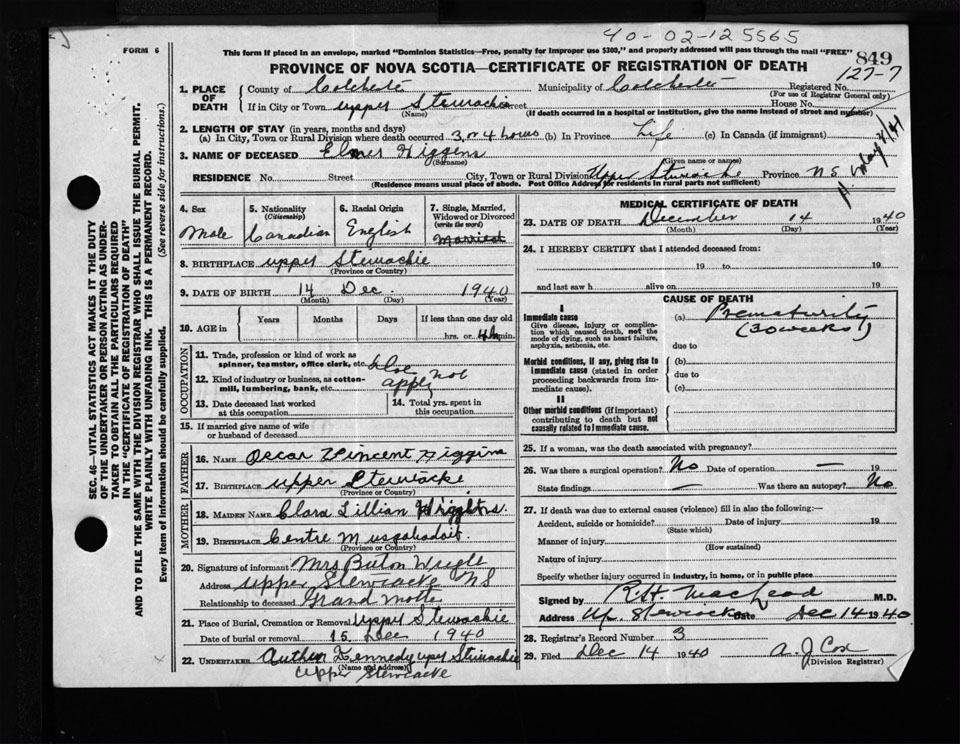 40-02-125565
FORM 6
This form if placed in an envelope, marked "Dominion Statistics—Free, penalty for improper use $300," and properly addressed will pass through the mail "FREE"
849
PROVINCE OF NOVA SCOTIA—CERTIFICATE OF REGISTRATION OF DEATH
127-7
1. PLACE OF DEATH
County of Colcheste Municipality of Colcheste Registered No.
(For use of Registrar General only)
If in City or Town upper Stewiacke Street House No.
(Name) (If death occurred in a hospital or institution, give the name instead of street and number)
2. LENGTH OF STAY (in years, months and days)
(a) In City, Town or Rural Division where death occurred 3 or 4 hours (b) In Province Life (c) In Canada (if immigrant)
3. NAME OF DECEASED Elmer Higgens
(Surname) (Given name or names)
RESIDENCE No. Street City, Town or Rural Division Upper Stewiacke Province N S
(Residence means usual place of abode. Post Office Address for residents in rural parts not sufficient)
SEC. 46—VITAL STATISTICS ACT MAKES IT THE DUTY
OF THE UNDERTAKER OR PERSON ACTING AS UNDER-
TAKER TO OBTAIN ALL THE PARTICULARS REQUIRED
IN THE "CERTIFICATE OF REGISTRATION OF DEATH"
AND TO FILE THE SAME WITH THE DIVISION REGISTRAR WHO SHALL ISSUE THE BURIAL PERMIT.
WRITE PLAINLY WITH UNFADING INK. THIS IS A PERMANENT RECORD.
Every item of information should be carefully supplied. (See reverse side for instructions.)
4. Sex
Male
5. Nationality
(Citizenship)
Canadian
6. Racial Origin
English
7. Single, Married,
Widowed or Divorced
(write the word)
Married
8. BIRTHPLACE upper Stewiackie
(Province or Country)
9. DATE OF BIRTH 14 Dec 1940
(Month) (Day) (Year)
10. AGE in
Years Months Days If less than one day old
hrs. or 4h min.
OCCUPATION
11. Trade, profession or kind of work as
spinner, teamster, office clerk, etc.
12. Kind of industry or business, as cotton-
mill, lumbering, bank, etc.
not
apply
13. Date deceased last worked
at this occupation
14. Total yrs. spent in
this occupation
15. If married give name of wife
or husband of deceased
FATHER
16. NAME Oscar Vincent Higgins
17. BIRTHPLACE upper Stewiacke
(Province or Country)
MOTHER
18. MAIDEN NAME Clara Lillian Wright
19. BIRTHPLACE Centre Musquodoboit
(Province or Country)
20. Signature of informant Mrs Burton Wright
Address upper Stewiacke NS
Relationship to deceased Grand mother
21. Place of Burial, Cremation or Removal Upper Stewiacke
Date of burial or removal 15 Dec 1940
22. UNDERTAKER Arthur Kennedy uper Stewiackie
(Name and address)
upper Stewiacke
MEDICAL CERTIFICATE OF DEATH
23. DATE OF DEATH December 14 1940
(Month) (Day) (Year)
24. I HEREBY CERTIFY that I attended deceased from:
19 to 19
and last saw h alive on 19
CAUSE OF DEATH
I
Immediate cause
Give disease, injury or complica-
tion which caused death, not the
mode of dying, such as heart failure,
asphyxia, asthenia, etc.
(a) Prematurity
(30 weeks)
due to
Morbid conditions, if any, giving rise to
immediate cause (stated in order
proceeding backwards from im-
mediate cause).
(b)
due to
(c)
II
Other morbid conditions (if important)
contributing to death but not
causally related to immediate cause.
25. If a woman, was the death associated with pregnancy?
26. Was there a surgical operation? No Date of operation — 19
State findings — Was there an autopsy? No
27. If death was due to external causes (violence) fill in also the following:—
Accident, suicide or homicide? Date of injury 19
(State which)
Manner of injury
(How sustained)
Nature of injury
Specify whether injury occurred in industry, in home, or in public place
Signed by R. H. MacLeod M.D.
Address Up. Stewiacke Date Dec 14 1940
28. Registrar's Record Number 3
29. Filed Dec 14 1940 A. J. Cox
(Division Registrar)